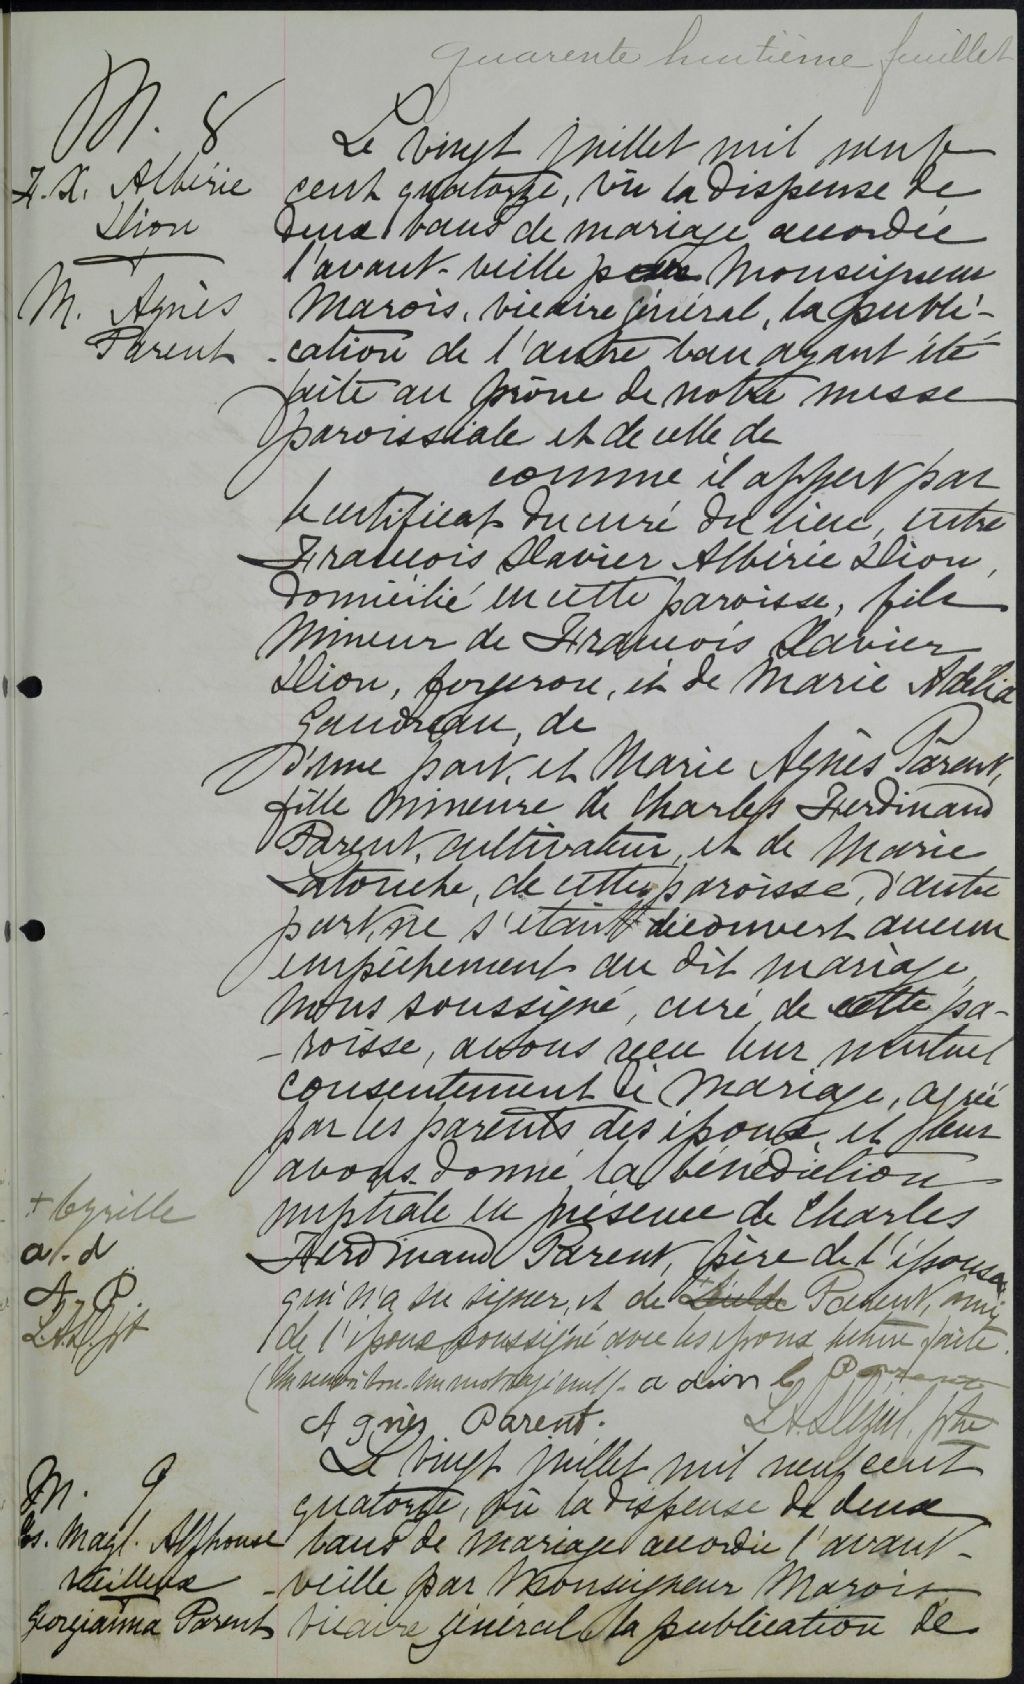 quarente huitième feuillet
M. 8
F. X. Albérie
Dion
+
M. Agnès
Parent
Le vingt juillet mil neuf
cent quatorze, vu la dispense de
deux bans de mariage accordée
l'avant-veille par Monseigneur
Marois, vicaire général, la publi-
-cation de l'autre ban ayant été
faite au prône de notre messe
paroissiale et de celle de
comme il appert par
le certificat du curé du lieu, entre
François Xavier Albérie Dion,
domicilié en cette paroisse, fils
mineur de François Xavier
Dion, forgeron, et de Marie Adélia
Gaudreau, de
d'une part, et Marie Agnès Parent,
fille mineure de Charles Ferdinand
Parent, cultivateur, et de Marie
Latouche, de cette paroisse, d'autre
part, ne s'étant découvert aucun
empêchement au dit mariage,
nous soussigné, curé de cette pa-
-roisse, avons reçu leur mutuel
consentement de mariage, agréé
par les parents des époux, et leur
avons donné la bénédiction
nuptiale en présence de Charles
Ferdinand Parent, père de l'épouse
qui n'a su signer, et de + Parent, ami
de l'époux soussigné avec les époux lecture faite.
+ Cyrille
a. d
A P
(Un mot a dion c Parent
Agnès Parent. ptre
M. 9
Jos. Magl. Alphonse
Veilleux
Georgianna Parent
Le vingt juillet mil neuf cent
quatorze, vu la dispense de deux
bans de mariage accordée l'avant-
-veille par Monseigneur Marois
vicaire général, la publication de